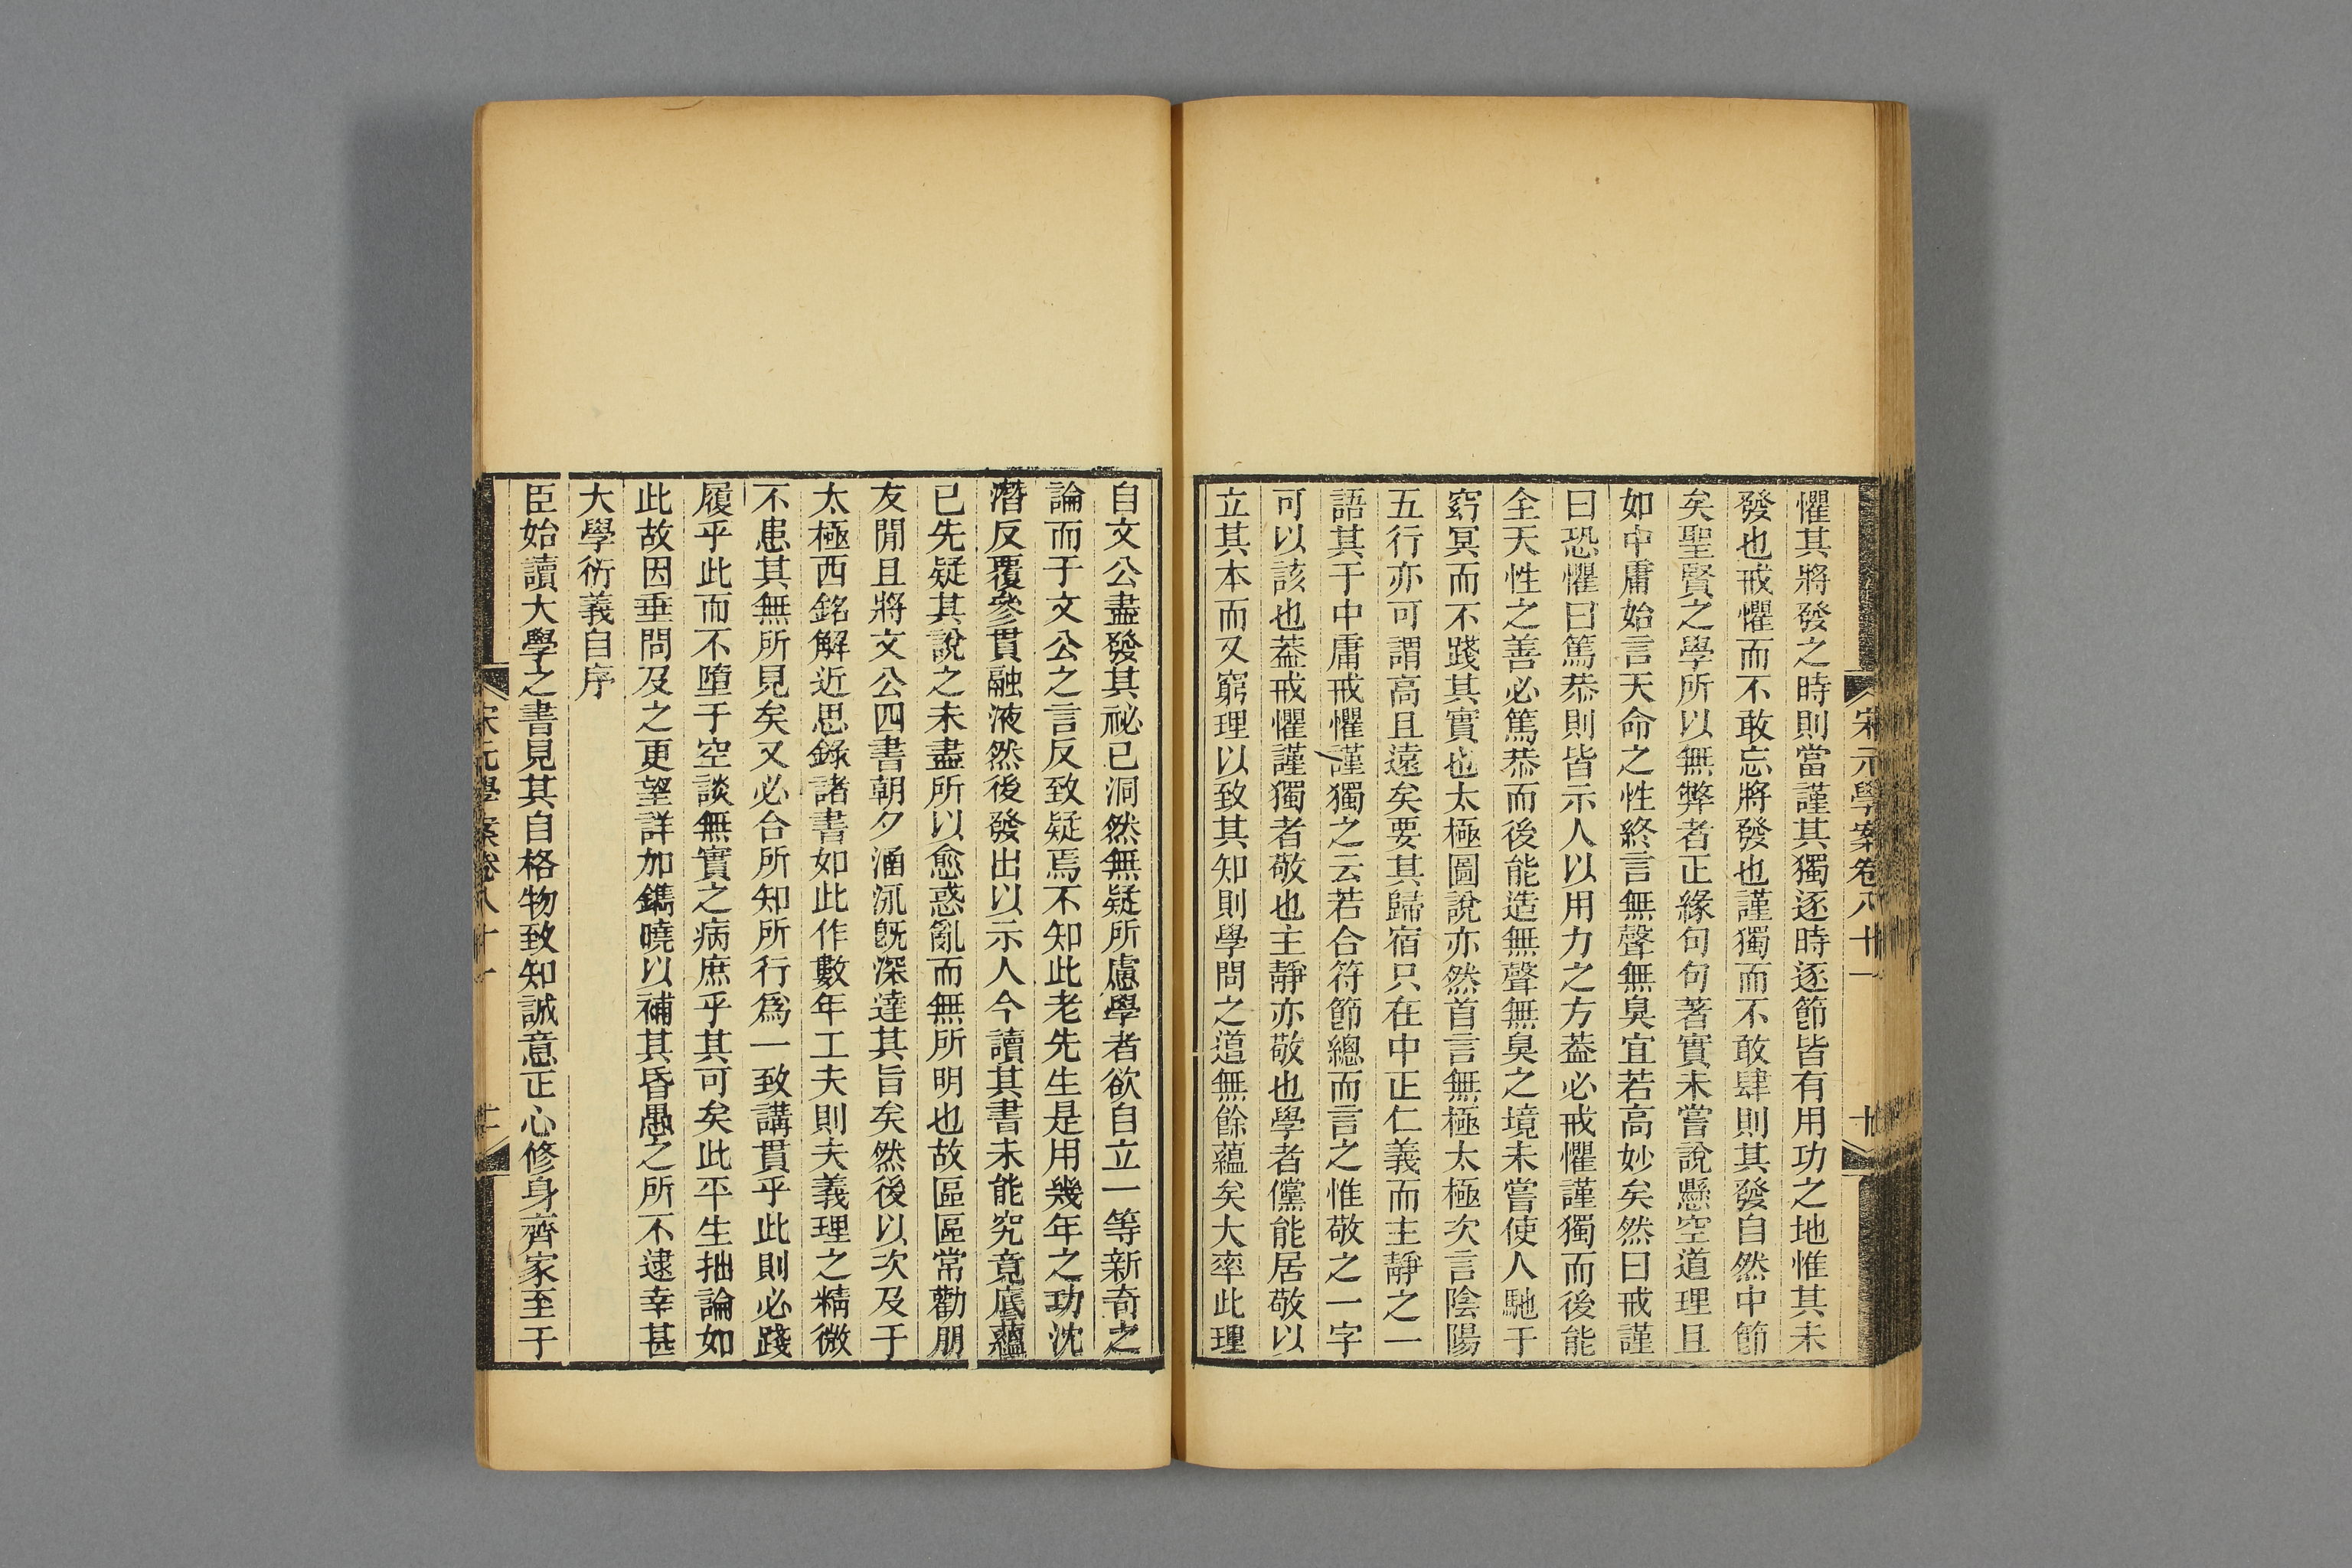 宋元學案卷八十一
十
懼其將發之時則當謹其獨逐時逐節皆有用功之地惟其未
發也戒懼而不敢忘將發也謹獨而不敢肆則其發自然中節
矣聖賢之學所以無弊者正緣句句著實未嘗說懸空道理且
如中庸始言天命之性終言無聲無臭宜若高妙矣然曰戒謹
曰恐懼曰篤恭則皆示人以用力之方葢必戒懼謹獨而後能
全天性之善必篤恭而後能造無聲無臭之境未嘗使人馳于
窈冥而不踐其實也太極圖說亦然首言無極太極次言陰陽
五行亦可謂高且遠矣要其歸宿只在中正仁義而主靜之一
語其于中庸戒懼謹獨之云若合符節總而言之惟敬之一字
可以該也葢戒懼謹獨者敬也主靜亦敬也學者儻能居敬以
立其本而又窮理以致其知則學問之道無餘蘊矣大率此理
自文公盡發其祕已洞然無疑所慮學者欲自立一等新奇之
論而于文公之言反致疑焉不知此老先生是用幾年之功沈
潛反覆參貫融液然後發出以示人今讀其書未能究竟底蘊
已先疑其說之未盡所以愈惑亂而無所明也故區區常勸朋
友閒且將文公四書朝夕涵泳旣深達其旨矣然後以次及于
太極西銘解近思錄諸書如此作數年工夫則夫義理之精微
不患其無所見矣又必合所知所行爲一致講貫乎此則必踐
履乎此而不墮于空談無實之病庶乎其可矣此平生拙論如
此故因垂問及之更望詳加鐫曉以補其昏愚之所不逮幸甚
大學衍義自序
臣始讀大學之書見其自格物致知誠意正心修身齊家至于
宋元學案卷八十一